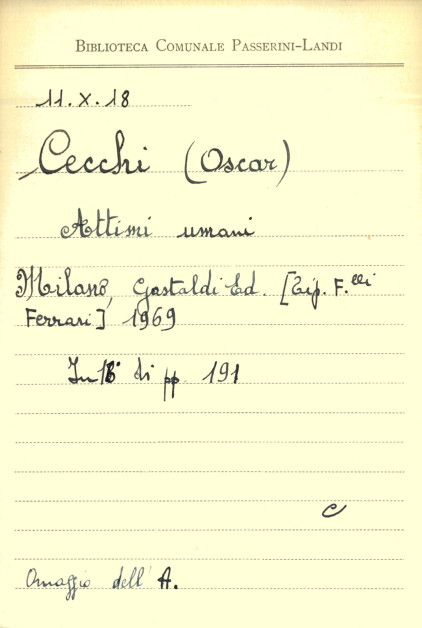 BIBLIOTECA COMUNALE PASSERINI-LANDI
11.X.18
Cecchi (Oscar)
Attimi umani
Milano, Gastaldi Ed. [Tip. F.lli
Ferrari] 1969
In 16° di pp. 191
C
Omaggio dell'A.